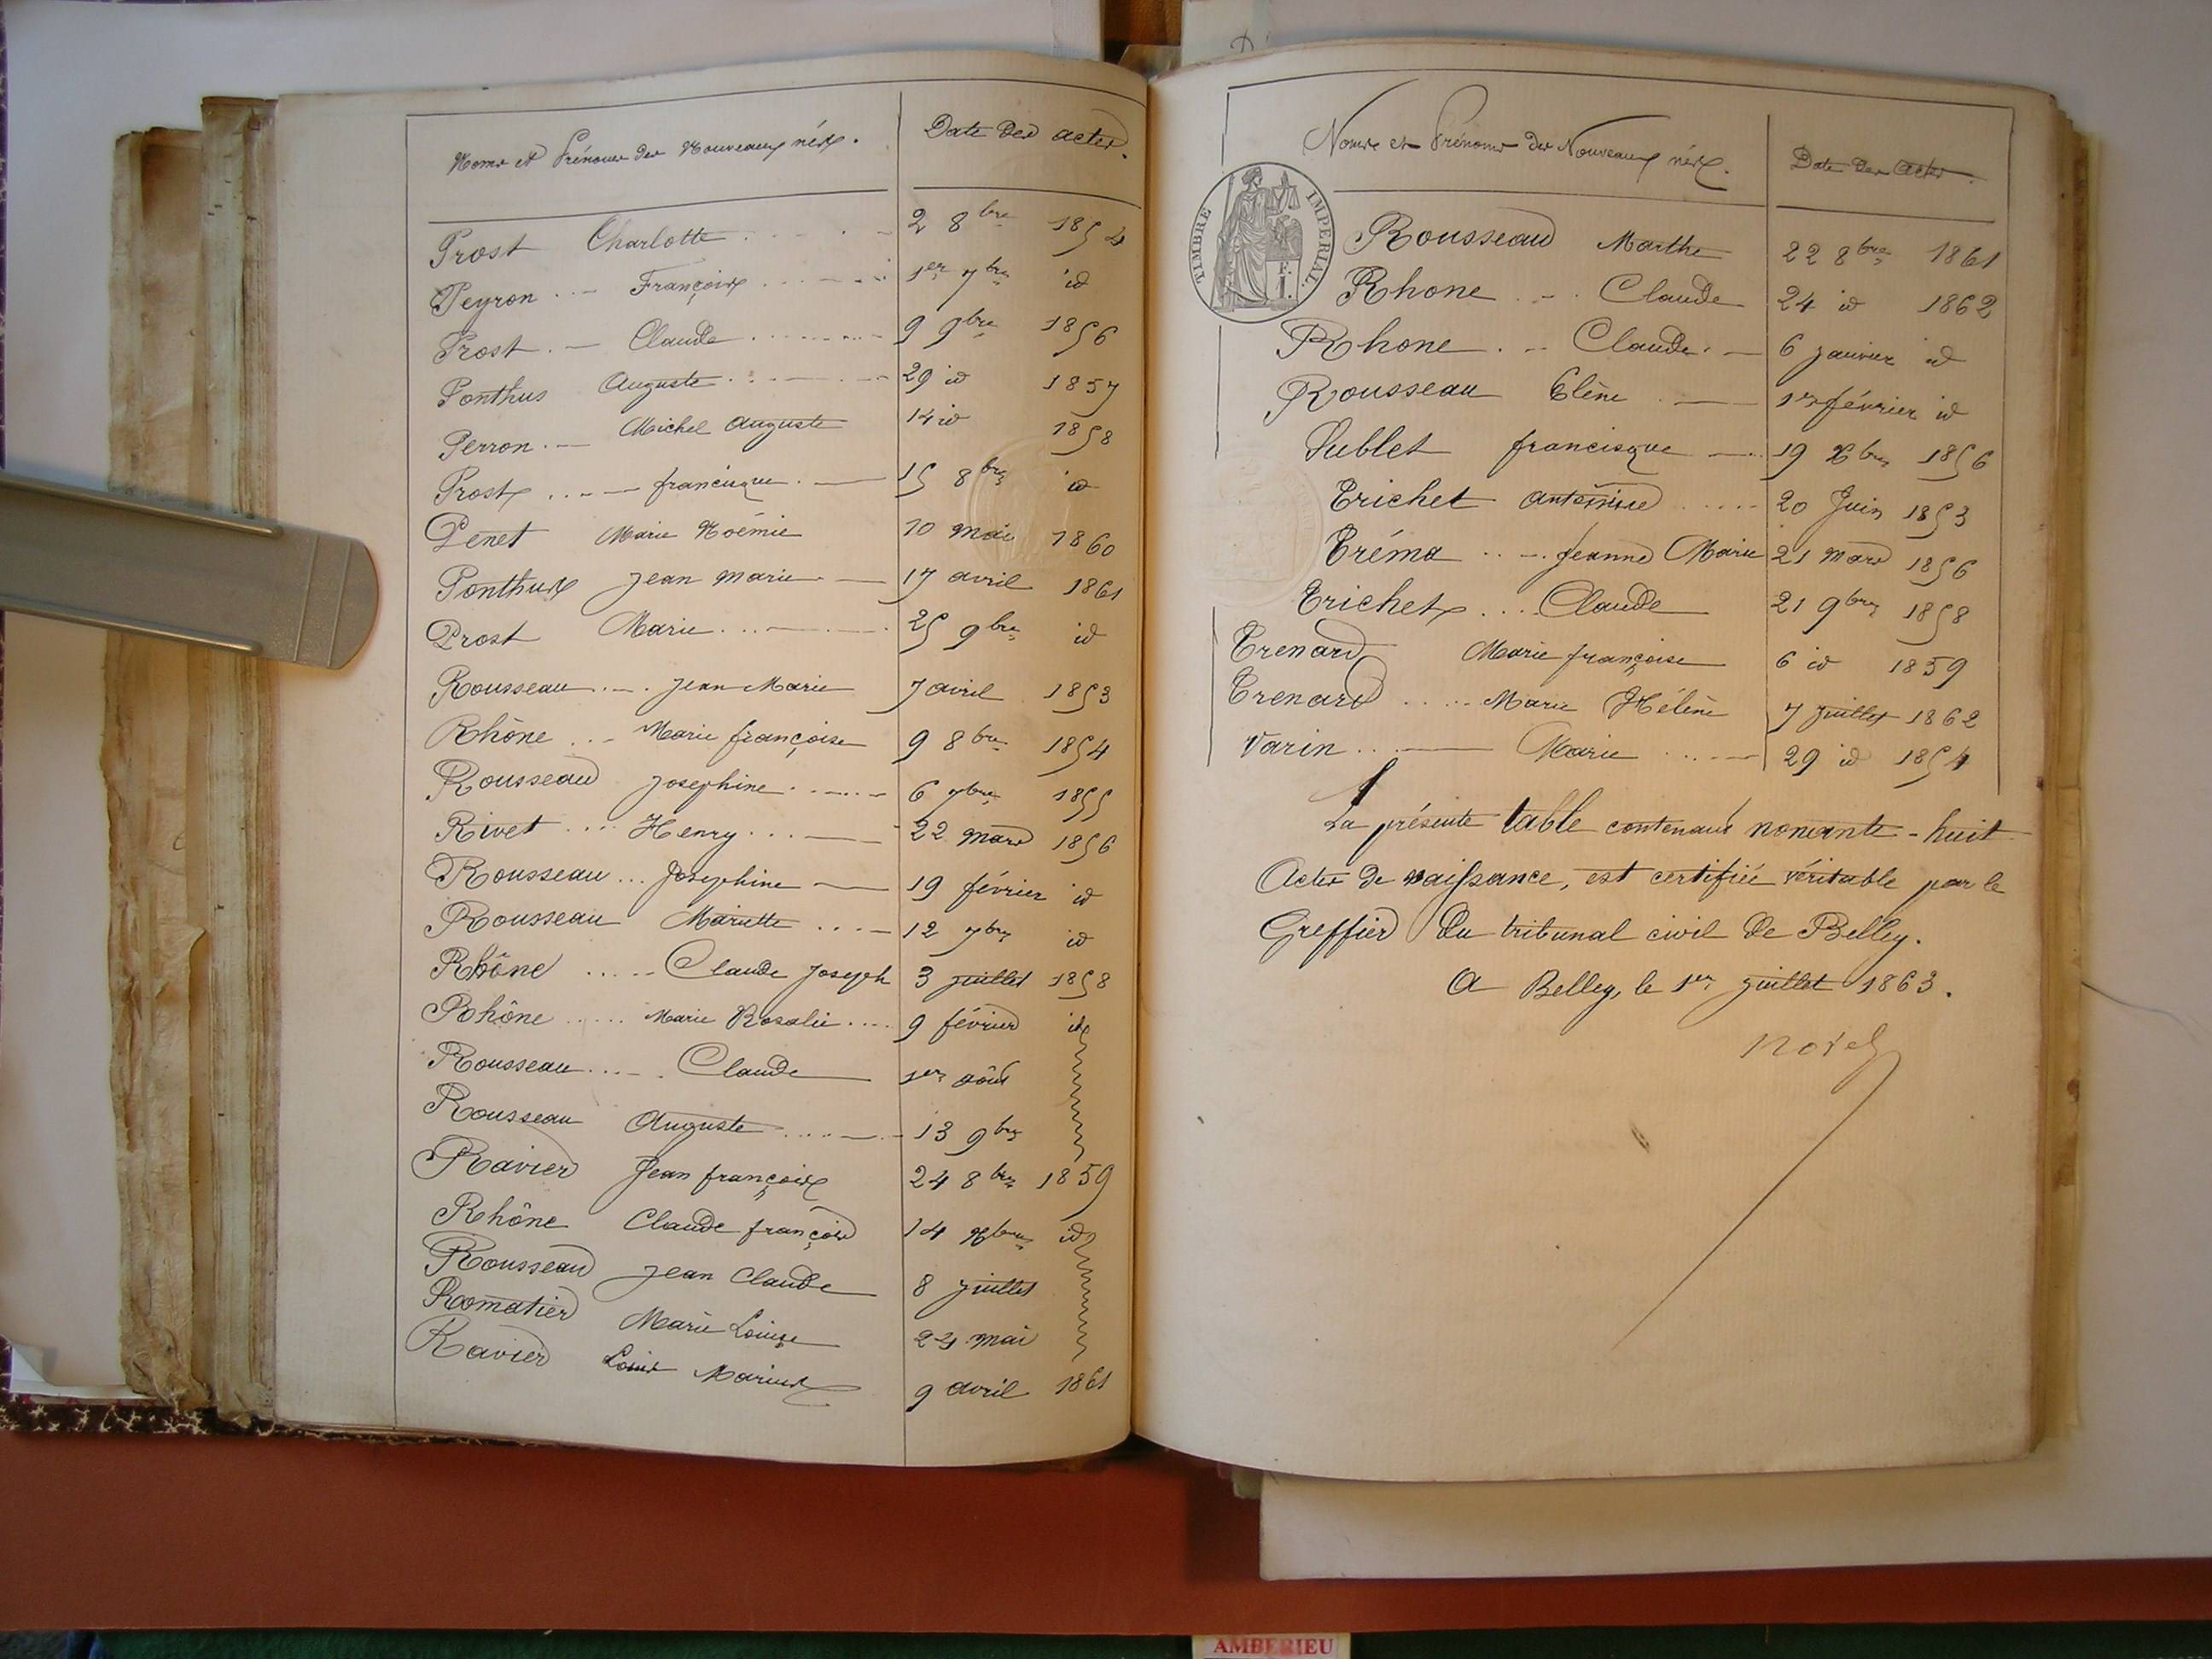 Noms et Prénoms des Nouveaux nés. Date des actes.
Prost Charlotte 2 8bre 1854
Peyron François 1er 7bre id
Prost Claude 9 9bre 1856
Ponthus Auguste 29 id 1857
Perron Michel Auguste 14 id 1858
Prost francisque 15 8bre id
Penet Marie Noémie 10 mai 1860
Ponthus Jean Marie 17 avril 1861
Prost Marie 25 9bre id
Rousseau Jean Marie 7 avril 1853
Rhône Marie françoise 9 8bre 1854
Rousseau Josephine 6 7bre 1855
Rivet Henry 22 mars 1856
Rousseau Josephine 19 février id
Rousseau Mariette 12 7bre id
Rhône Claude Joseph 3 juillet 1858
Rhône Marie Rosalie 9 février id
Rousseau Claude 1er août
Rousseau Auguste 13 9bre
Ravier Jean françois 24 8bre 1859
Rhône Claude françois 14 Xbre id
Rousseau Jean Claude 8 juillet
Romatier Marie Louise 24 mai
Ravier Louis Marius 9 avril 1861
Noms et Prénoms des Nouveaux nés. Date des actes.
TIMBRE IMPERIAL.
Rousseau Marthe 22 8bre 1861
Rhone Claude 24 id 1862
Rhone Claude 6 janvier id
Rousseau Elène 1er février id
Sublet francisque 19 Xbre 1856
Trichet antoinine 20 Juin 1853
Tréma Jeanne Marie 21 mars 1856
Trichet Claude 21 9bre 1858
Trenard Marie françoise 6 id 1859
Trenard Marie Hélène 7 juillet 1862
Varin Marie 29 id 1854
La présente table contenant nonante-huit
Actes de naissance, est certifiée véritable par le
Greffier du tribunal civil de Belley.
A Belley, le 1er juillet 1863.
AMBERIEU